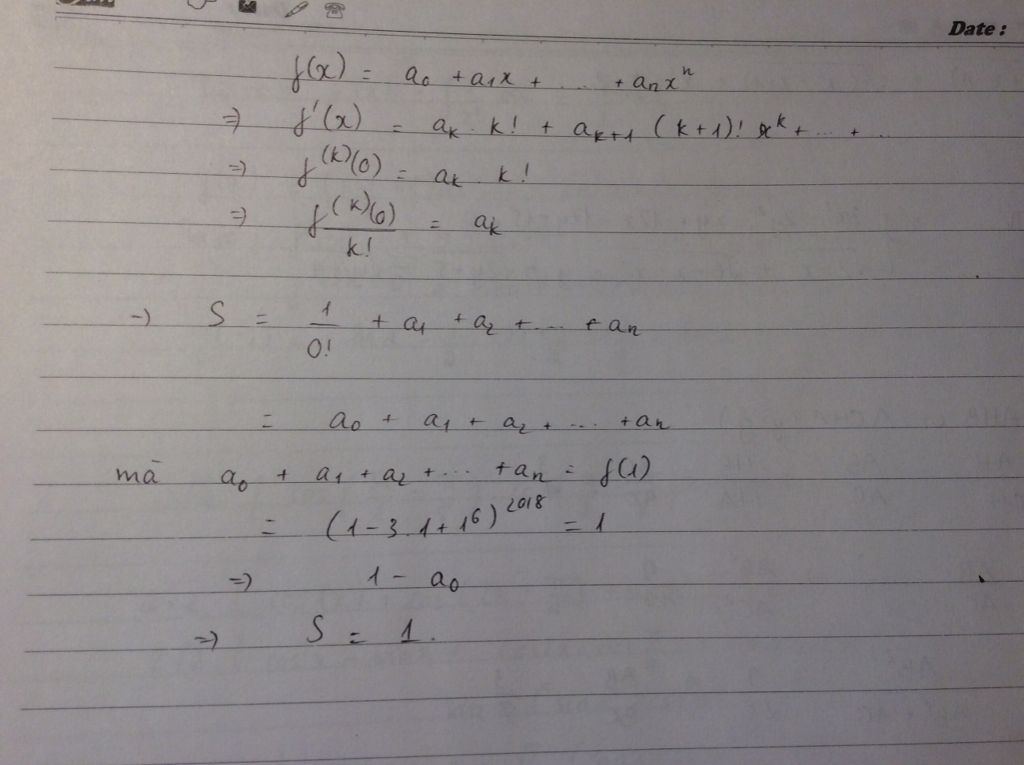 Date :
f(x) = a₀ + a₁x + ... + aₙxⁿ
=> f'(x) = aₖ . k! + aₖ₊₁ (k+1)! xᵏ + ... + ..
=> f⁽ᵏ⁾(0) = aₖ k!
=> f⁽ᵏ⁾(0) / k! = aₖ
=> S = 1/0! + a₁ + a₂ + ... + aₙ
= a₀ + a₁ + a₂ + ... + aₙ
mà a₀ + a₁ + a₂ + ... + aₙ = f(1)
= (1 - 3.1 + 1⁶)²⁰¹⁸ = 1
=> 1 - a₀
=> S = 1.